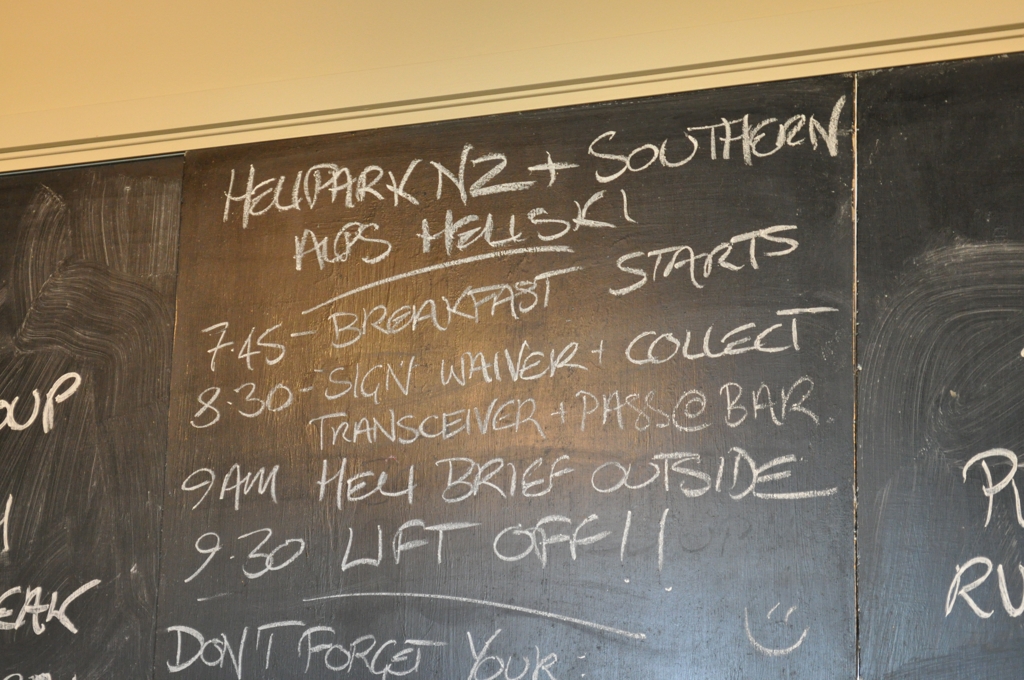 HELIPARK NZ + SOUTHERN
ALPS HELISKI
7.45 - BREAKFAST STARTS
8.30 - SIGN WAIVER + COLLECT
TRANSCEIVER + PASS @ BAR
9AM HELI BRIEF OUTSIDE
9.30 LIFT OFF!!
DON'T FORGET YOUR:
OUP
EAK
RU